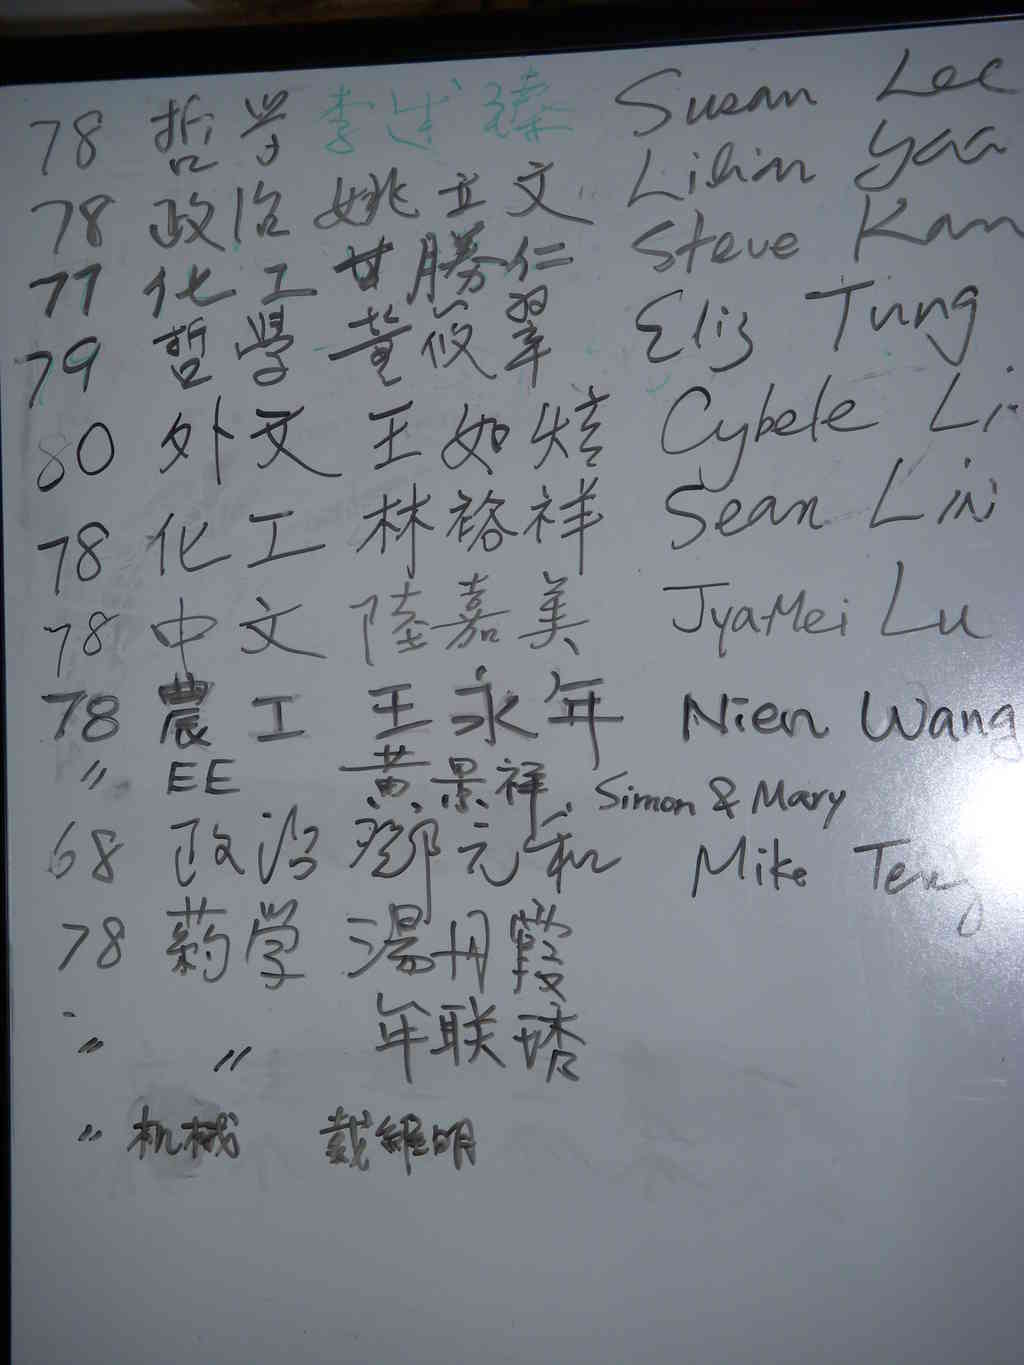 78 哲学 李述臻 Susan Lee
78 政治 姚立文 Lilian Yao
77 化工 甘勝仁 Steve Kan
79 哲學 董筱翠 Eliz Tung
80 外文 王如 Cybele Li
78 化工 林裕祥 Sean Lin
78 中文 陸嘉美 JyaMei Lu
78 農工 王永年 Nien Wang
〃 EE 黄景祥, Simon & Mary
68 政治 鄧元和 Mike Teng
78 药学 湯丹霞
〃 〃 年联琇
〃 机械 戴維明